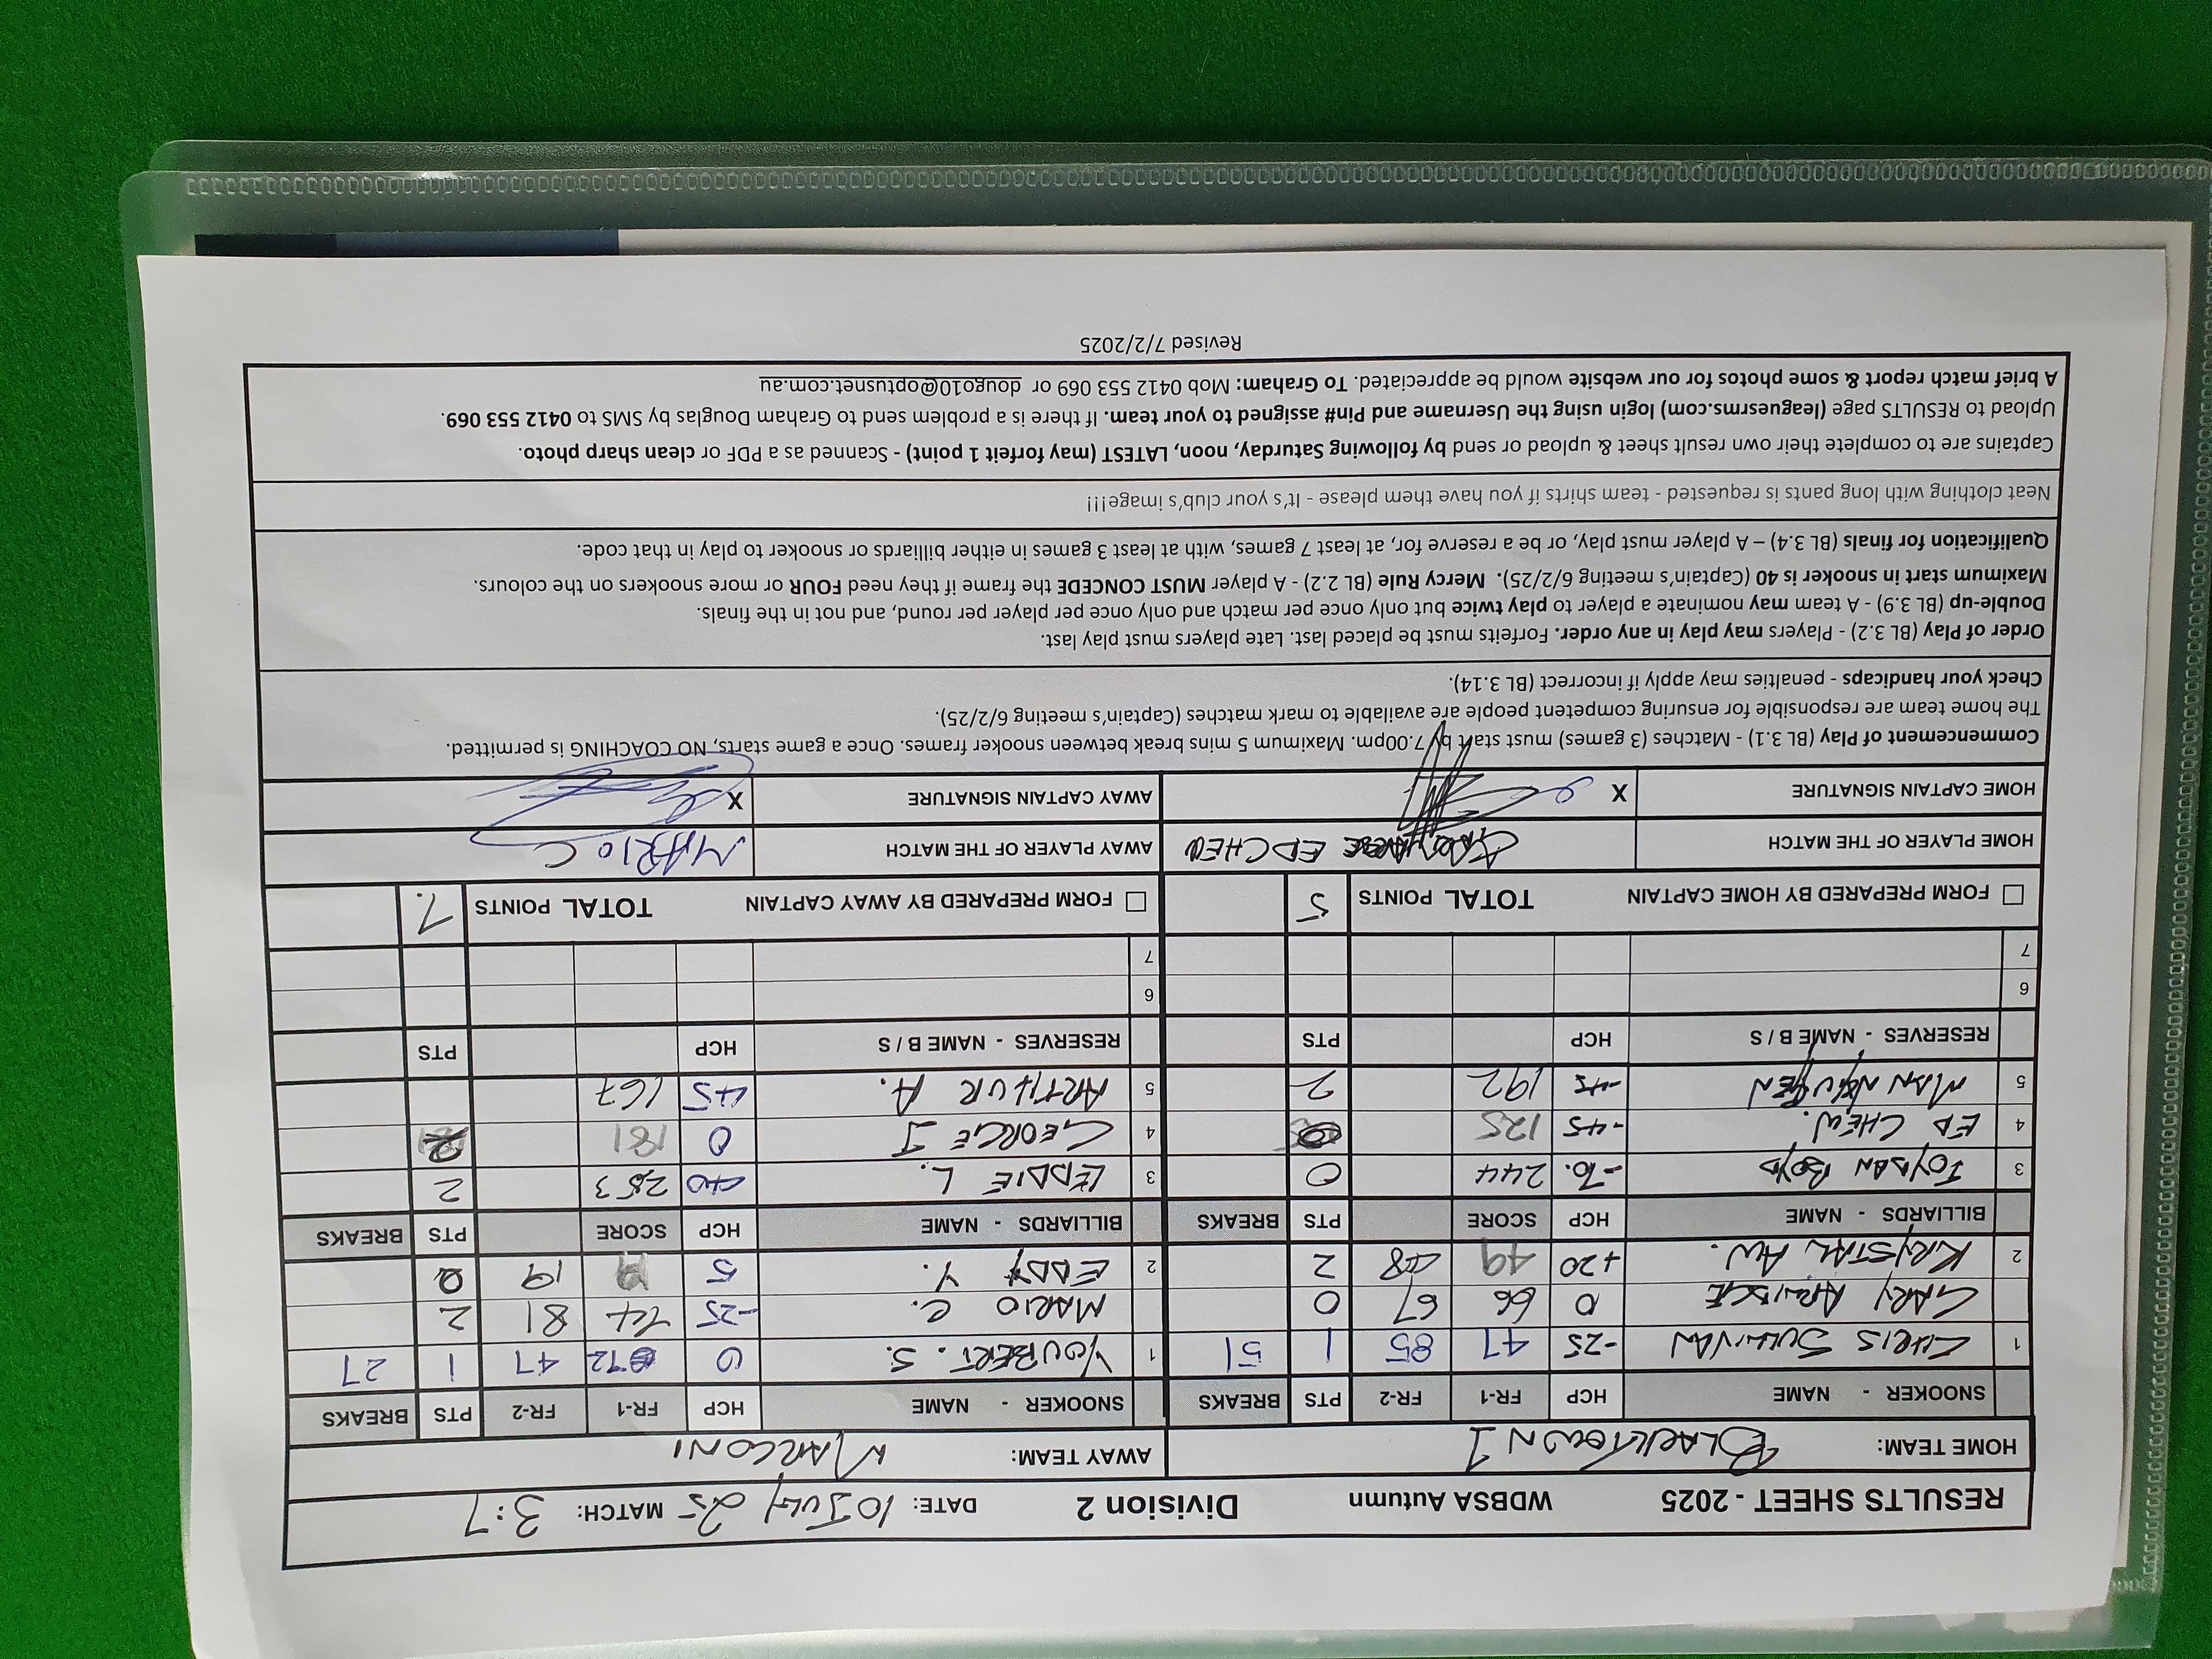 RESULTS SHEET - 2025 WDBSA Autumn Division 2 DATE: 10 JULY 25 MATCH: 3:7
HOME TEAM: BLACKTOWN 1 AWAY TEAM: MARCONI
SNOOKER - NAME HCP FR-1 FR-2 PTS BREAKS SNOOKER - NAME HCP FR-1 FR-2 PTS BREAKS
1 CHRIS SULLIVAN -25 47 85 1 51 1 YOUBERT. S. 0 72 47 1 27
GARY 0 66 67 0 MARIO C. -25 74 81 2
2 KRYSTAL AW. +20 49 48 2 2 EDDY Y. 5 19 0
BILLIARDS - NAME HCP SCORE PTS BREAKS BILLIARDS - NAME HCP SCORE PTS BREAKS
3 JOYDAN BOYD -70. 244 0 3 EDDIE L. 40 253 2
4 ED CHEW. -45 125 4 GEORGE J 0 181
5 MAN NGUYEN 192 2 5 ARTHUR A. 45 167
RESERVES - NAME B / S HCP PTS RESERVES - NAME B / S HCP PTS
6 6
7 7
FORM PREPARED BY HOME CAPTAIN TOTAL POINTS 5 FORM PREPARED BY AWAY CAPTAIN TOTAL POINTS 7.
HOME PLAYER OF THE MATCH ED CHEW AWAY PLAYER OF THE MATCH MARIO C
HOME CAPTAIN SIGNATURE X AWAY CAPTAIN SIGNATURE X
Commencement of Play (BL 3.1) - Matches (3 games) must start by 7.00pm. Maximum 5 mins break between snooker frames. Once a game starts, NO COACHING is permitted.
The home team are responsible for ensuring competent people are available to mark matches (Captain's meeting 6/2/25).
Check your handicaps - penalties may apply if incorrect (BL 3.14).
Order of Play (BL 3.2) - Players may play in any order. Forfeits must be placed last. Late players must play last.
Double-up (BL 3.9) - A team may nominate a player to play twice but only once per match and only once per player per round, and not in the finals.
Maximum start in snooker is 40 (Captain's meeting 6/2/25). Mercy Rule (BL 2.2) - A player MUST CONCEDE the frame if they need FOUR or more snookers on the colours.
Qualification for finals (BL 3.4) – A player must play, or be a reserve for, at least 7 games, with at least 3 games in either billiards or snooker to play in that code.
Neat clothing with long pants is requested - team shirts if you have them please - It's your club's image!!!
Captains are to complete their own result sheet & upload or send by following Saturday, noon, LATEST (may forfeit 1 point) - Scanned as a PDF or clean sharp photo.
Upload to RESULTS page (leaguesrms.com) login using the Username and Pin# assigned to your team. If there is a problem send to Graham Douglas by SMS to 0412 553 069.
A brief match report & some photos for our website would be appreciated. To Graham: Mob 0412 553 069 or dougo10@optusnet.com.au
Revised 7/2/2025